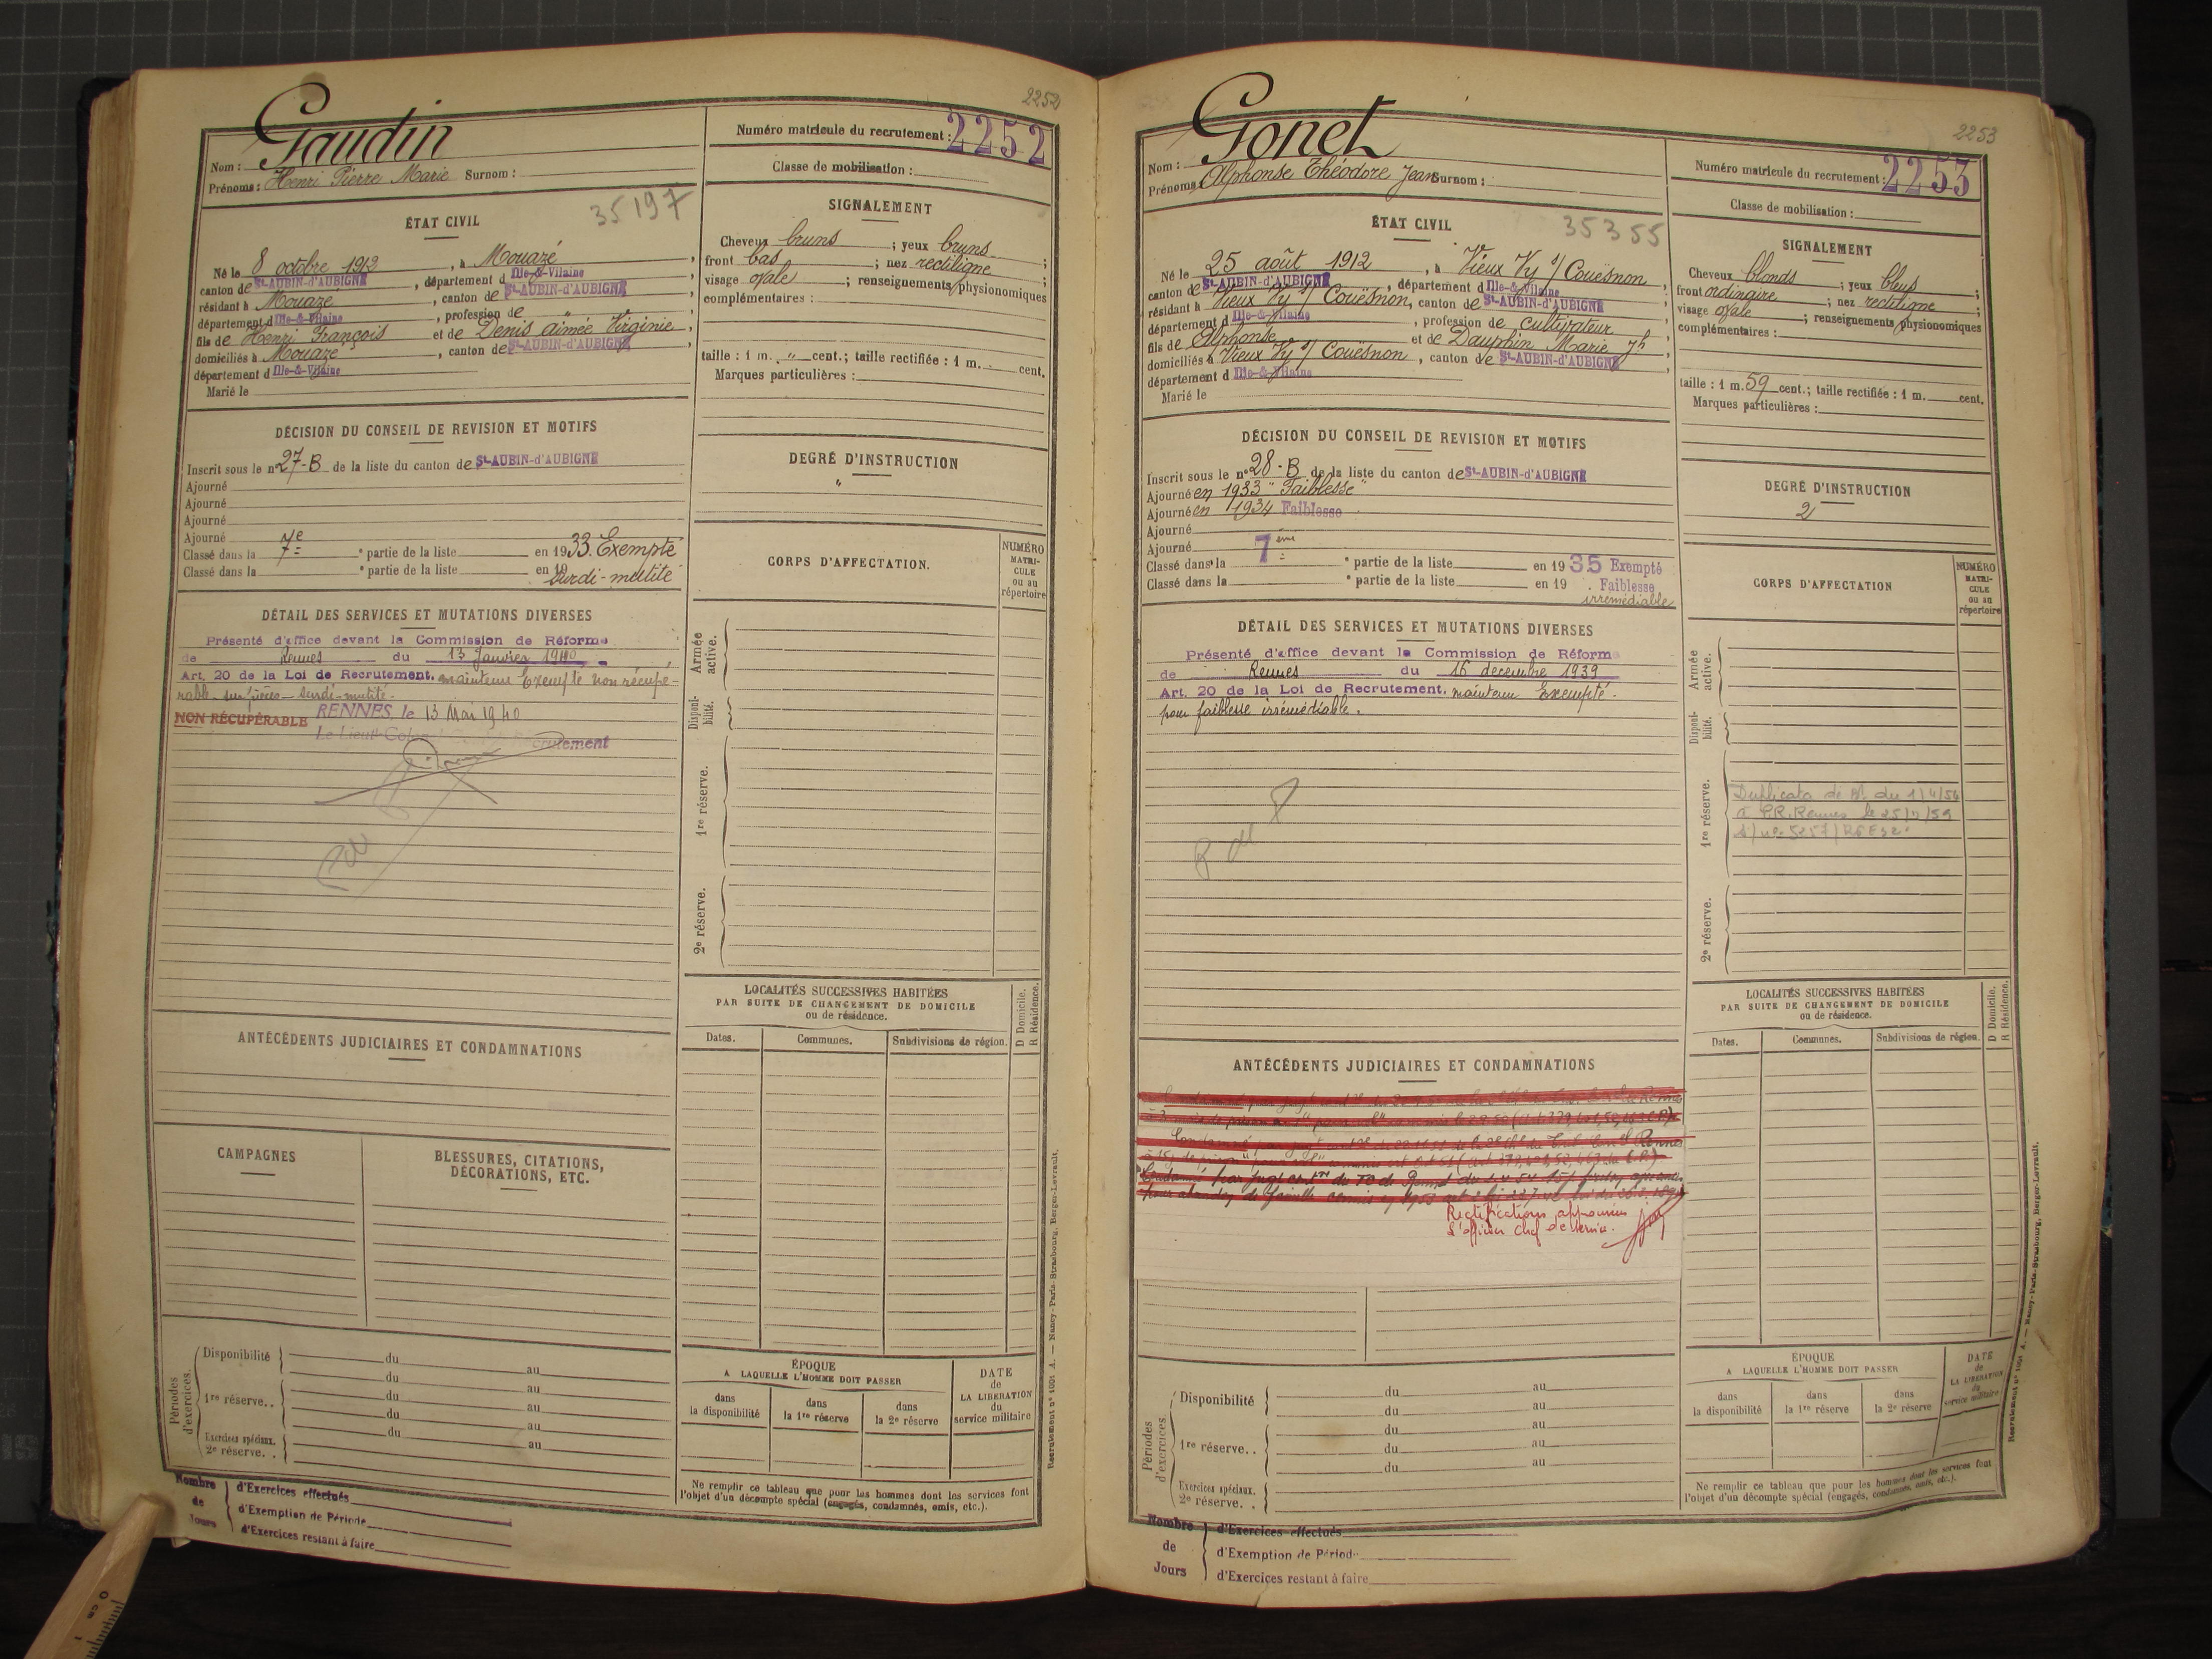 2252
Gaudin
Nom :
Prénoms : Henri Pierre Marie Surnom :
35197
ÉTAT CIVIL
Né le 8 octobre 1912, à Mouazé,
canton de St-AUBIN-d'AUBIGNÉ, département d Ille-&-Vilaine
résidant à Mouazé, canton de St-AUBIN-d'AUBIGNÉ,
département d Ille-&-Vilaine, profession de "
fils de Henri François et de Denis Aimée Virginie,
domiciliés à Mouazé, canton de St-AUBIN-d'AUBIGNÉ,
département d Ille-&-Vilaine
Marié le
DÉCISION DU CONSEIL DE REVISION ET MOTIFS
Inscrit sous le n° 27-B de la liste du canton de St-AUBIN-d'AUBIGNÉ
Ajourné
Ajourné
Ajourné
Ajourné
Classé dans la 7e partie de la liste en 1933. Exempté
Classé dans la partie de la liste en 19 Surdi-mutité
DÉTAIL DES SERVICES ET MUTATIONS DIVERSES
Présenté d'office devant la Commission de Réforme
de Rennes du 13 Janvier 1940
Art. 20 de la Loi de Recrutement. maintenu Exempté non récupé-
rable sur pièces - surdi-mutité.
NON RÉCUPÉRABLE RENNES, le 13 Mai 1940
Recrutement
ANTÉCÉDENTS JUDICIAIRES ET CONDAMNATIONS
CAMPAGNES
BLESSURES, CITATIONS,
DÉCORATIONS, ETC.
Périodes d'exercices.
Disponibilité du au
du au
1re réserve.. du au
du au
du au
Exercices spéciaux.
2e réserve.. au
Nombre de Jours
d'Exercices effectués
d'Exemption de Période
d'Exercices restant à faire
Numéro matricule du recrutement : 2252
Classe de mobilisation :
SIGNALEMENT
Cheveux bruns ; yeux bruns ;
front bas ; nez rectiligne ;
visage ovale ; renseignements physionomiques
complémentaires :
taille : 1 m. " cent.; taille rectifiée : 1 m. cent.
Marques particulières :
DEGRÉ D'INSTRUCTION
"
CORPS D'AFFECTATION.
NUMÉRO MATRI-CULE ou au répertoire
Armée active.
Disponi-bilité.
1re réserve.
2e réserve.
LOCALITÉS SUCCESSIVES HABITÉES
PAR SUITE DE CHANGEMENT DE DOMICILE
ou de résidence.
D Domicile.
R Résidence.
Dates. Communes. Subdivisions de région.
ÉPOQUE
A LAQUELLE L'HOMME DOIT PASSER
dans la disponibilité
dans la 1re réserve
dans la 2e réserve
DATE de LA LIBÉRATION du service militaire
Ne remplir ce tableau que pour les hommes dont les services font
l'objet d'un décompte spécial (engagés, condamnés, omis, etc.).
Recrutement n° 1001 A. — Nancy-Paris-Strasbourg, Berger-Levrault.
2253
Gonet
Nom :
Prénoms : Alphonse Théodore Jean Surnom :
35355
ÉTAT CIVIL
Né le 25 août 1912, à Vieux Vy s/ Couësnon,
canton de St-AUBIN-d'AUBIGNÉ, département d Ille-&-Vilaine
résidant à Vieux Vy s/ Couësnon, canton de St-AUBIN-d'AUBIGNÉ,
département d Ille-&-Vilaine, profession de cultivateur
fils de Alphonse et de Dauphin Marie Jh
domiciliés à Vieux Vy s/ Couësnon, canton de St-AUBIN-d'AUBIGNÉ,
département d Ille-&-Vilaine
Marié le
DÉCISION DU CONSEIL DE REVISION ET MOTIFS
Inscrit sous le n° 28-B de la liste du canton de St-AUBIN-d'AUBIGNÉ
Ajourné en 1933 "Faiblesse"
Ajourné en 1934 Faiblesse
Ajourné
Ajourné
Classé dans la 7ème partie de la liste en 1935 Exempté
Classé dans la partie de la liste en 19 Faiblesse
irrémédiable
DÉTAIL DES SERVICES ET MUTATIONS DIVERSES
Présenté d'office devant la Commission de Réform
de Rennes du 16 décembre 1939
Art. 20 de la Loi de Recrutement. maintenu Exempté.
pour faiblesse irrémédiable.
ANTÉCÉDENTS JUDICIAIRES ET CONDAMNATIONS
Rectifications approuvées
L'officier chef de service.
Périodes d'exercices
Disponibilité du au
du au
1re réserve.. du au
du au
du au
Exercices spéciaux.
2e réserve..
Nombre de Jours
d'Exercices effectués
d'Exemption de Périod
d'Exercices restant à faire
Numéro matricule du recrutement : 2253
Classe de mobilisation :
SIGNALEMENT
Cheveux blonds ; yeux bleus ;
front ordinaire ; nez rectiligne ;
visage ovale ; renseignements physionomiques
complémentaires :
taille : 1 m. 59 cent.; taille rectifiée : 1 m. cent.
Marques particulières :
DEGRÉ D'INSTRUCTION
2
CORPS D'AFFECTATION
NUMÉRO MATRI-CULE ou au répertoire
Armée active.
Disponi-bilité.
1re réserve.
Duplicata de
2e réserve.
LOCALITÉS SUCCESSIVES HABITÉES
PAR SUITE DE CHANGEMENT DE DOMICILE
ou de résidence.
D Domicile.
R Résidence.
Dates. Communes. Subdivisions de région.
ÉPOQUE
A LAQUELLE L'HOMME DOIT PASSER
dans la disponibilité
dans la 1re réserve
dans la 2e réserve
DATE de LA LIBÉRATION du service militaire
Ne remplir ce tableau que pour les hommes dont les services font
l'objet d'un décompte spécial (engagés, condamnés, omis, etc.).
Recrutement n° 1001 A. — Nancy-Paris-Strasbourg, Berger-Levrault.